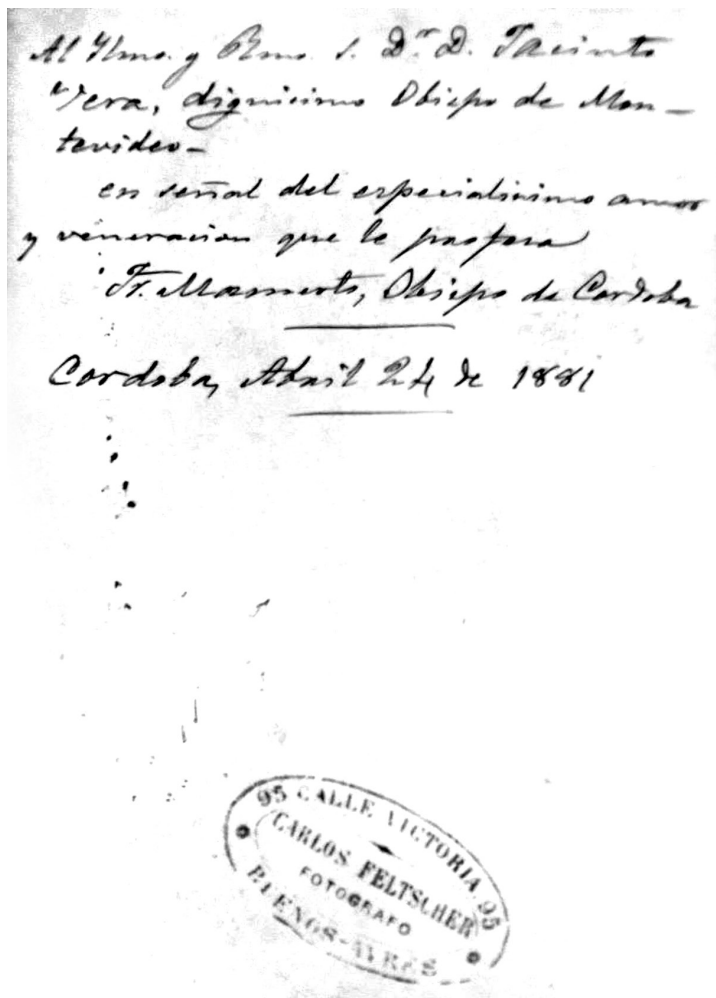 Al Ylmo. y Rmo. S. Dor D. Jacinto
Vera, dignicimo Obispo de Mon-
tevideo-
en señal del especialicimo amor
y veneracion que le profesa
Fr. Mamerto, Obispo de Cordoba
Cordoba, Abril 24 de 1881
95 CALLE VICTORIA 95
CARLOS FELTSCHER
FOTOGRAFO
BUENOS-AYRES